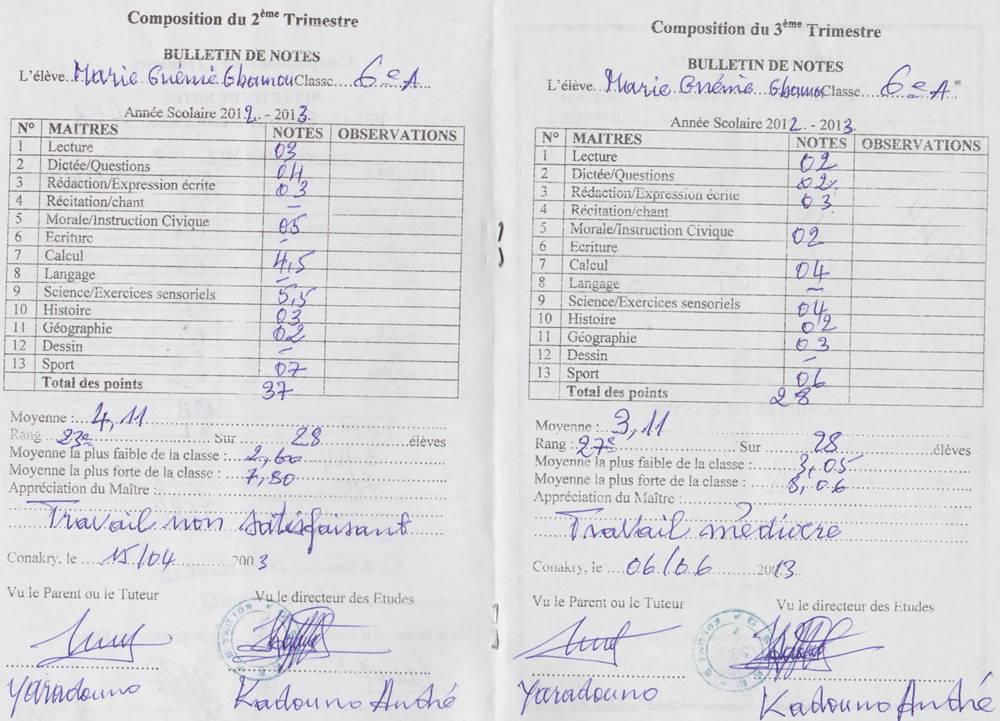 Composition du 2ème Trimestre
BULLETIN DE NOTES
L'élève...Marie Gnémie Gbamou Classe....6e A
Année Scolaire 2012. - 2013.
N° MAITRES NOTES OBSERVATIONS
1 Lecture 03
2 Dictée/Questions 04
3 Rédaction/Expression écrite 03
4 Récitation/chant –
5 Morale/Instruction Civique 05
6 Ecriture –
7 Calcul 4,5
8 Langage –
9 Science/Exercices sensoriels 5,5
10 Histoire 03
11 Géographie 02
12 Dessin –
13 Sport 07
Total des points 37
Moyenne : 4,11
Rang 23e Sur 28 élèves
Moyenne la plus faible de la classe : 2,60
Moyenne la plus forte de la classe : 7,80
Appréciation du Maître :
Travail non satisfaisant
Conakry, le 15/04 2003
Vu le Parent ou le Tuteur Vu le directeur des Etudes
Yaradouno Kadouno André
Composition du 3ème Trimestre
BULLETIN DE NOTES
L'élève...Marie Gnémie Gbamou Classe....6e A
Année Scolaire 2012. - 2013.
N° MAITRES NOTES OBSERVATIONS
1 Lecture 02
2 Dictée/Questions 02
3 Rédaction/Expression écrite 03
4 Récitation/chant
5 Morale/Instruction Civique 02
6 Ecriture
7 Calcul 04
8 Langage –
9 Science/Exercices sensoriels 04
10 Histoire 02
11 Géographie 03
12 Dessin –
13 Sport 06
Total des points 28
Moyenne : 3,11
Rang : 27e Sur 28 élèves
Moyenne la plus faible de la classe : 3,05
Moyenne la plus forte de la classe : 8,06
Appréciation du Maître :
Travail médiocre
Conakry, le 06/06 2013
Vu le Parent ou le Tuteur Vu le directeur des Etudes
Yaradouno Kadouno André